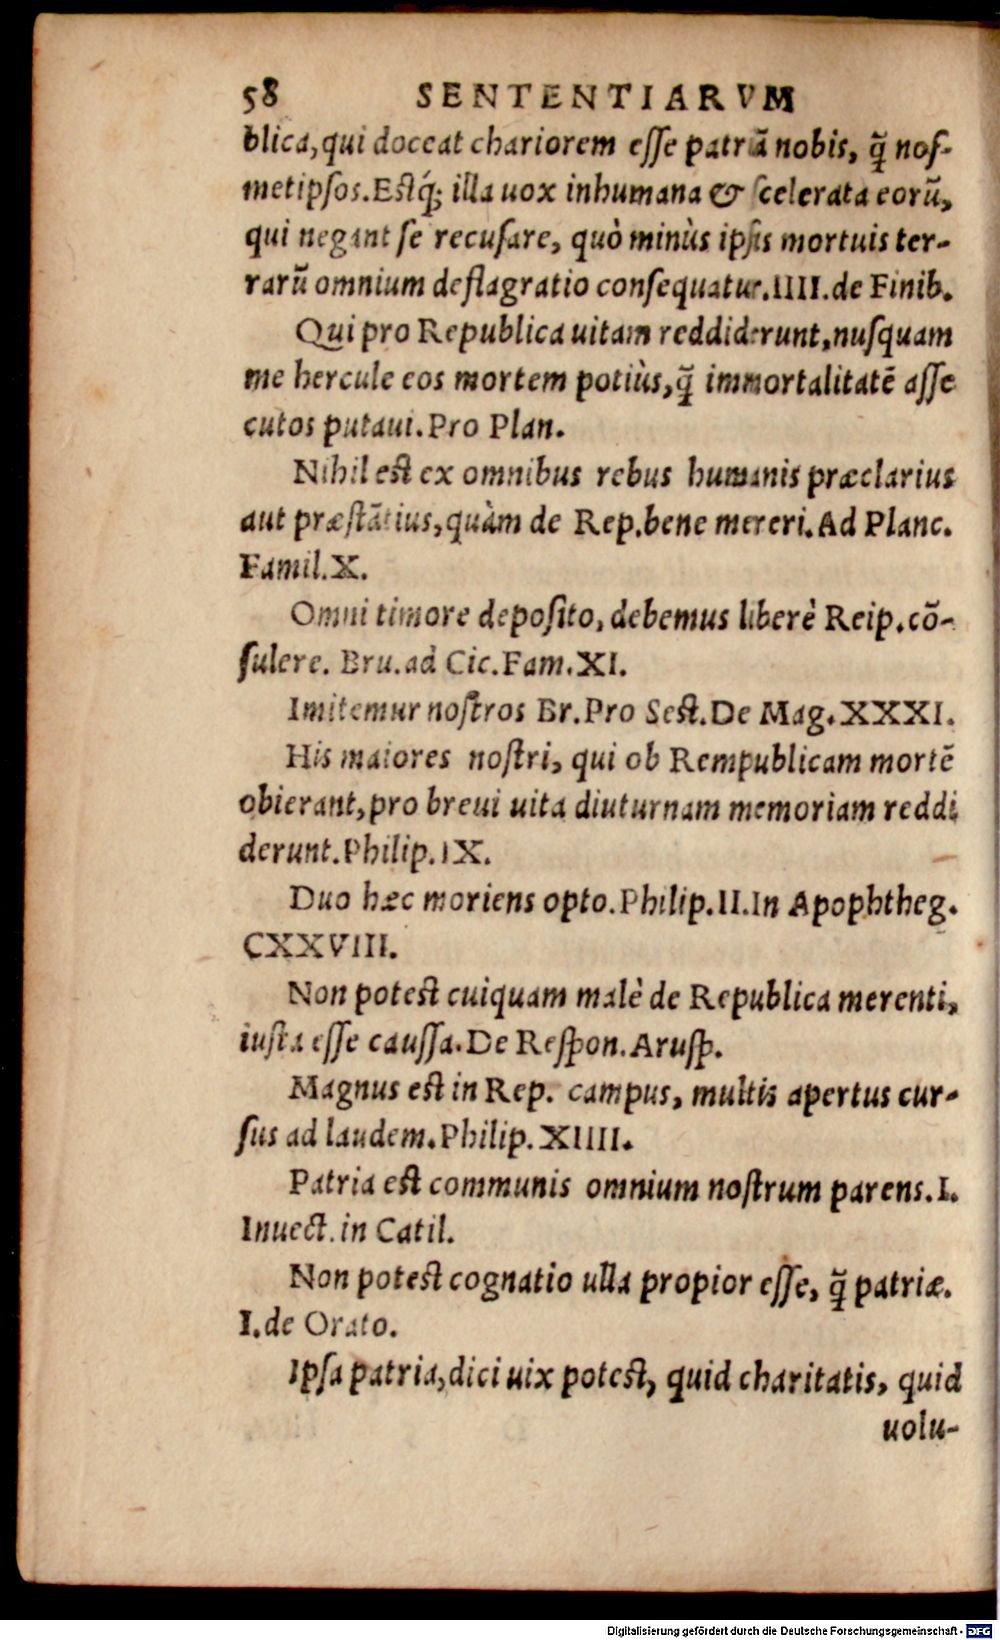 58 SENTENTIARVM
blica, qui doceat chariorem esse patriã nobis, q̃ nos-
metipsos. Estq́; illa uox inhumana & scelerata eorũ,
qui negant se recusare, quò minùs ipsis mortuis ter-
rarũ omnium deflagratio consequatur. IIII. de Finib.
Qui pro Republica uitam reddiderunt, nusquam
me hercule eos mortem potiùs, q̃ immortalitatẽ asse
cutos putaui. Pro Plan.
Nihil est ex omnibus rebus humanis præclarius
aut præstãtius, quàm de Rep. bene mereri. Ad Planc.
Famil. X.
Omni timore deposito, debemus liberè Reip. cõ-
sulere. Bru. ad Cic. Fam. XI.
Imitemur nostros Br. Pro Sest. De Mag. XXXI.
His maiores nostri, qui ob Rempublicam mortẽ
obierant, pro breui uita diuturnam memoriam reddi
derunt. Philip. IX.
Duo hæc moriens opto. Philip. II. In Apophtheg.
CXXVIII.
Non potest cuiquam malè de Republica merenti,
iusta esse caussa. De Respon. Arusp.
Magnus est in Rep. campus, multis apertus cur-
sus ad laudem. Philip. XIIII.
Patria est communis omnium nostrum parens. I.
Inuect. in Catil.
Non potest cognatio ulla propior esse, q̃ patriæ.
I. de Orato.
Ipsa patria, dici uix potest, quid charitatis, quid
uolu-
Digitalisierung gefördert durch die Deutsche Forschungsgemeinschaft - DFG